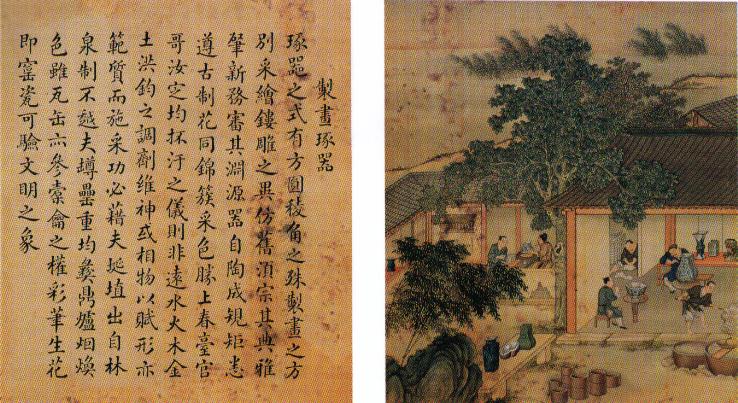 製畫琢器
琢器之式有方圓稜角之殊製畫之方
別采繪鏤雕之異仿舊湏宗其典雅
肇新務審其淵源器自陶成規矩悉
遵古制花同錦簇采色勝上春臺官
哥汝定均抔汙之儀則非遠水火木金
土洪鈞之調劑維神或相物以賦形亦
範質而施采功必藉夫埏埴出自林
泉制不越夫罇罍重均彝鼎爐烟煥
色雖瓦缶亦參橐龠之權彩華生花
即窑瓷可驗文明之象